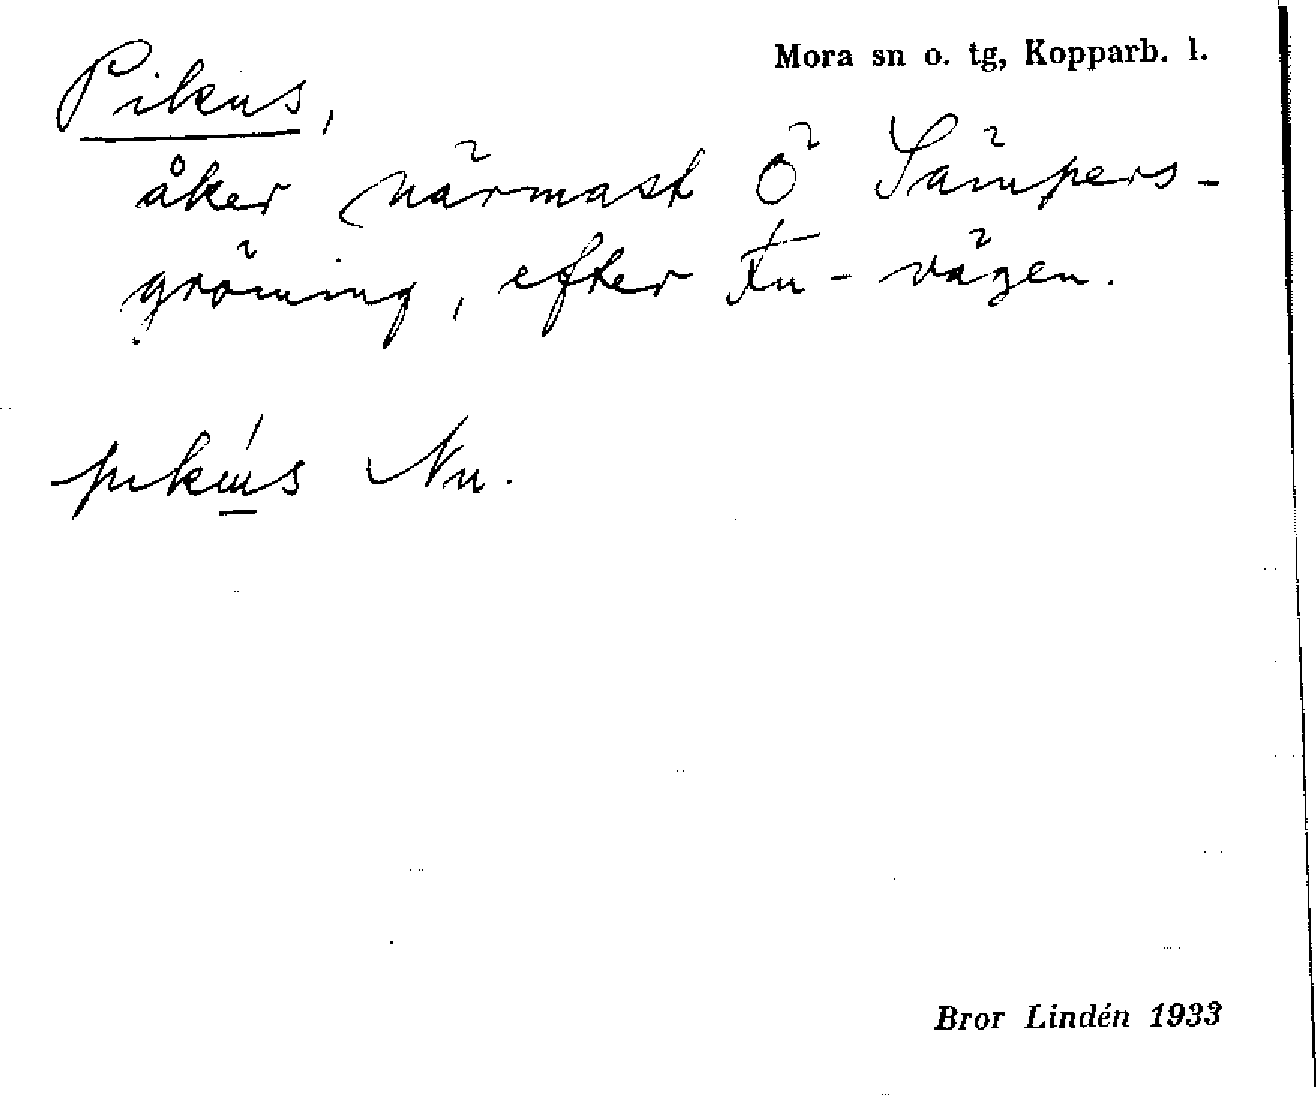 Mora sn o. tg, Kopparb. l.
Pikus,
åker närmast Ö Sämpers-
gröning, efter Fu-vägen.
pikus Nu.
Bror Lindén 1933